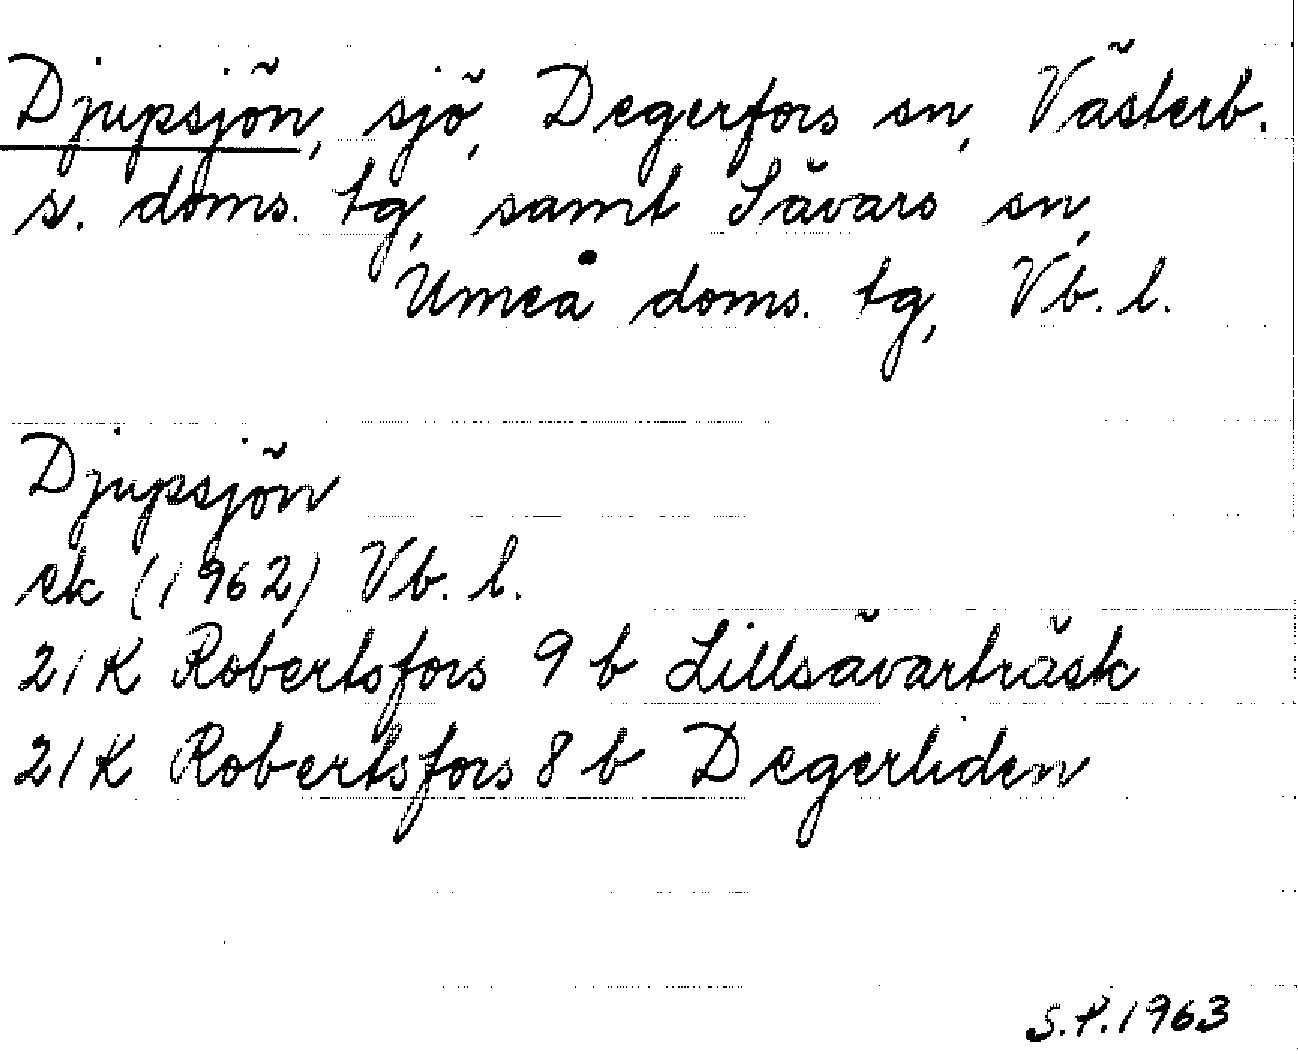 Djupsjön, sjö, Degerfors sn, Västerb.
s. doms. tg, samt Sävars sn,
Umeå doms. tg, Vb. l.
Djupsjön
ek (1962) Vb. l.
21K Robertsfors 9 b Lillsävarträsk
21K Robertsfors 8 b Degerliden
S.P.1963